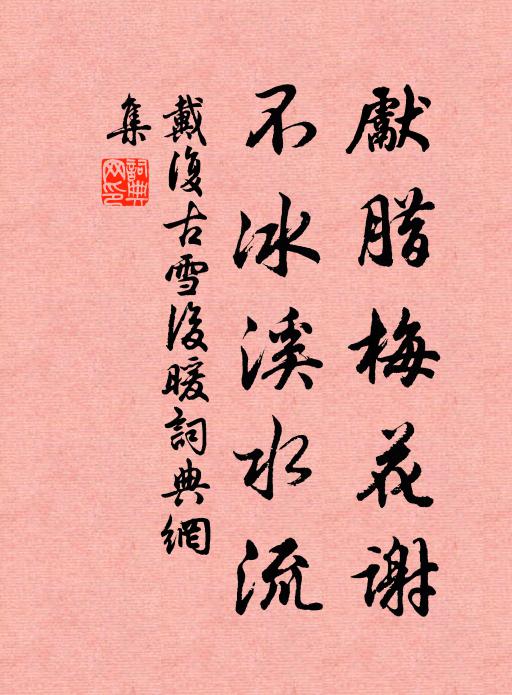 獻腊梅花謝
不冰溪水流
戴復古雪後暖詞典網
集
詞典網印